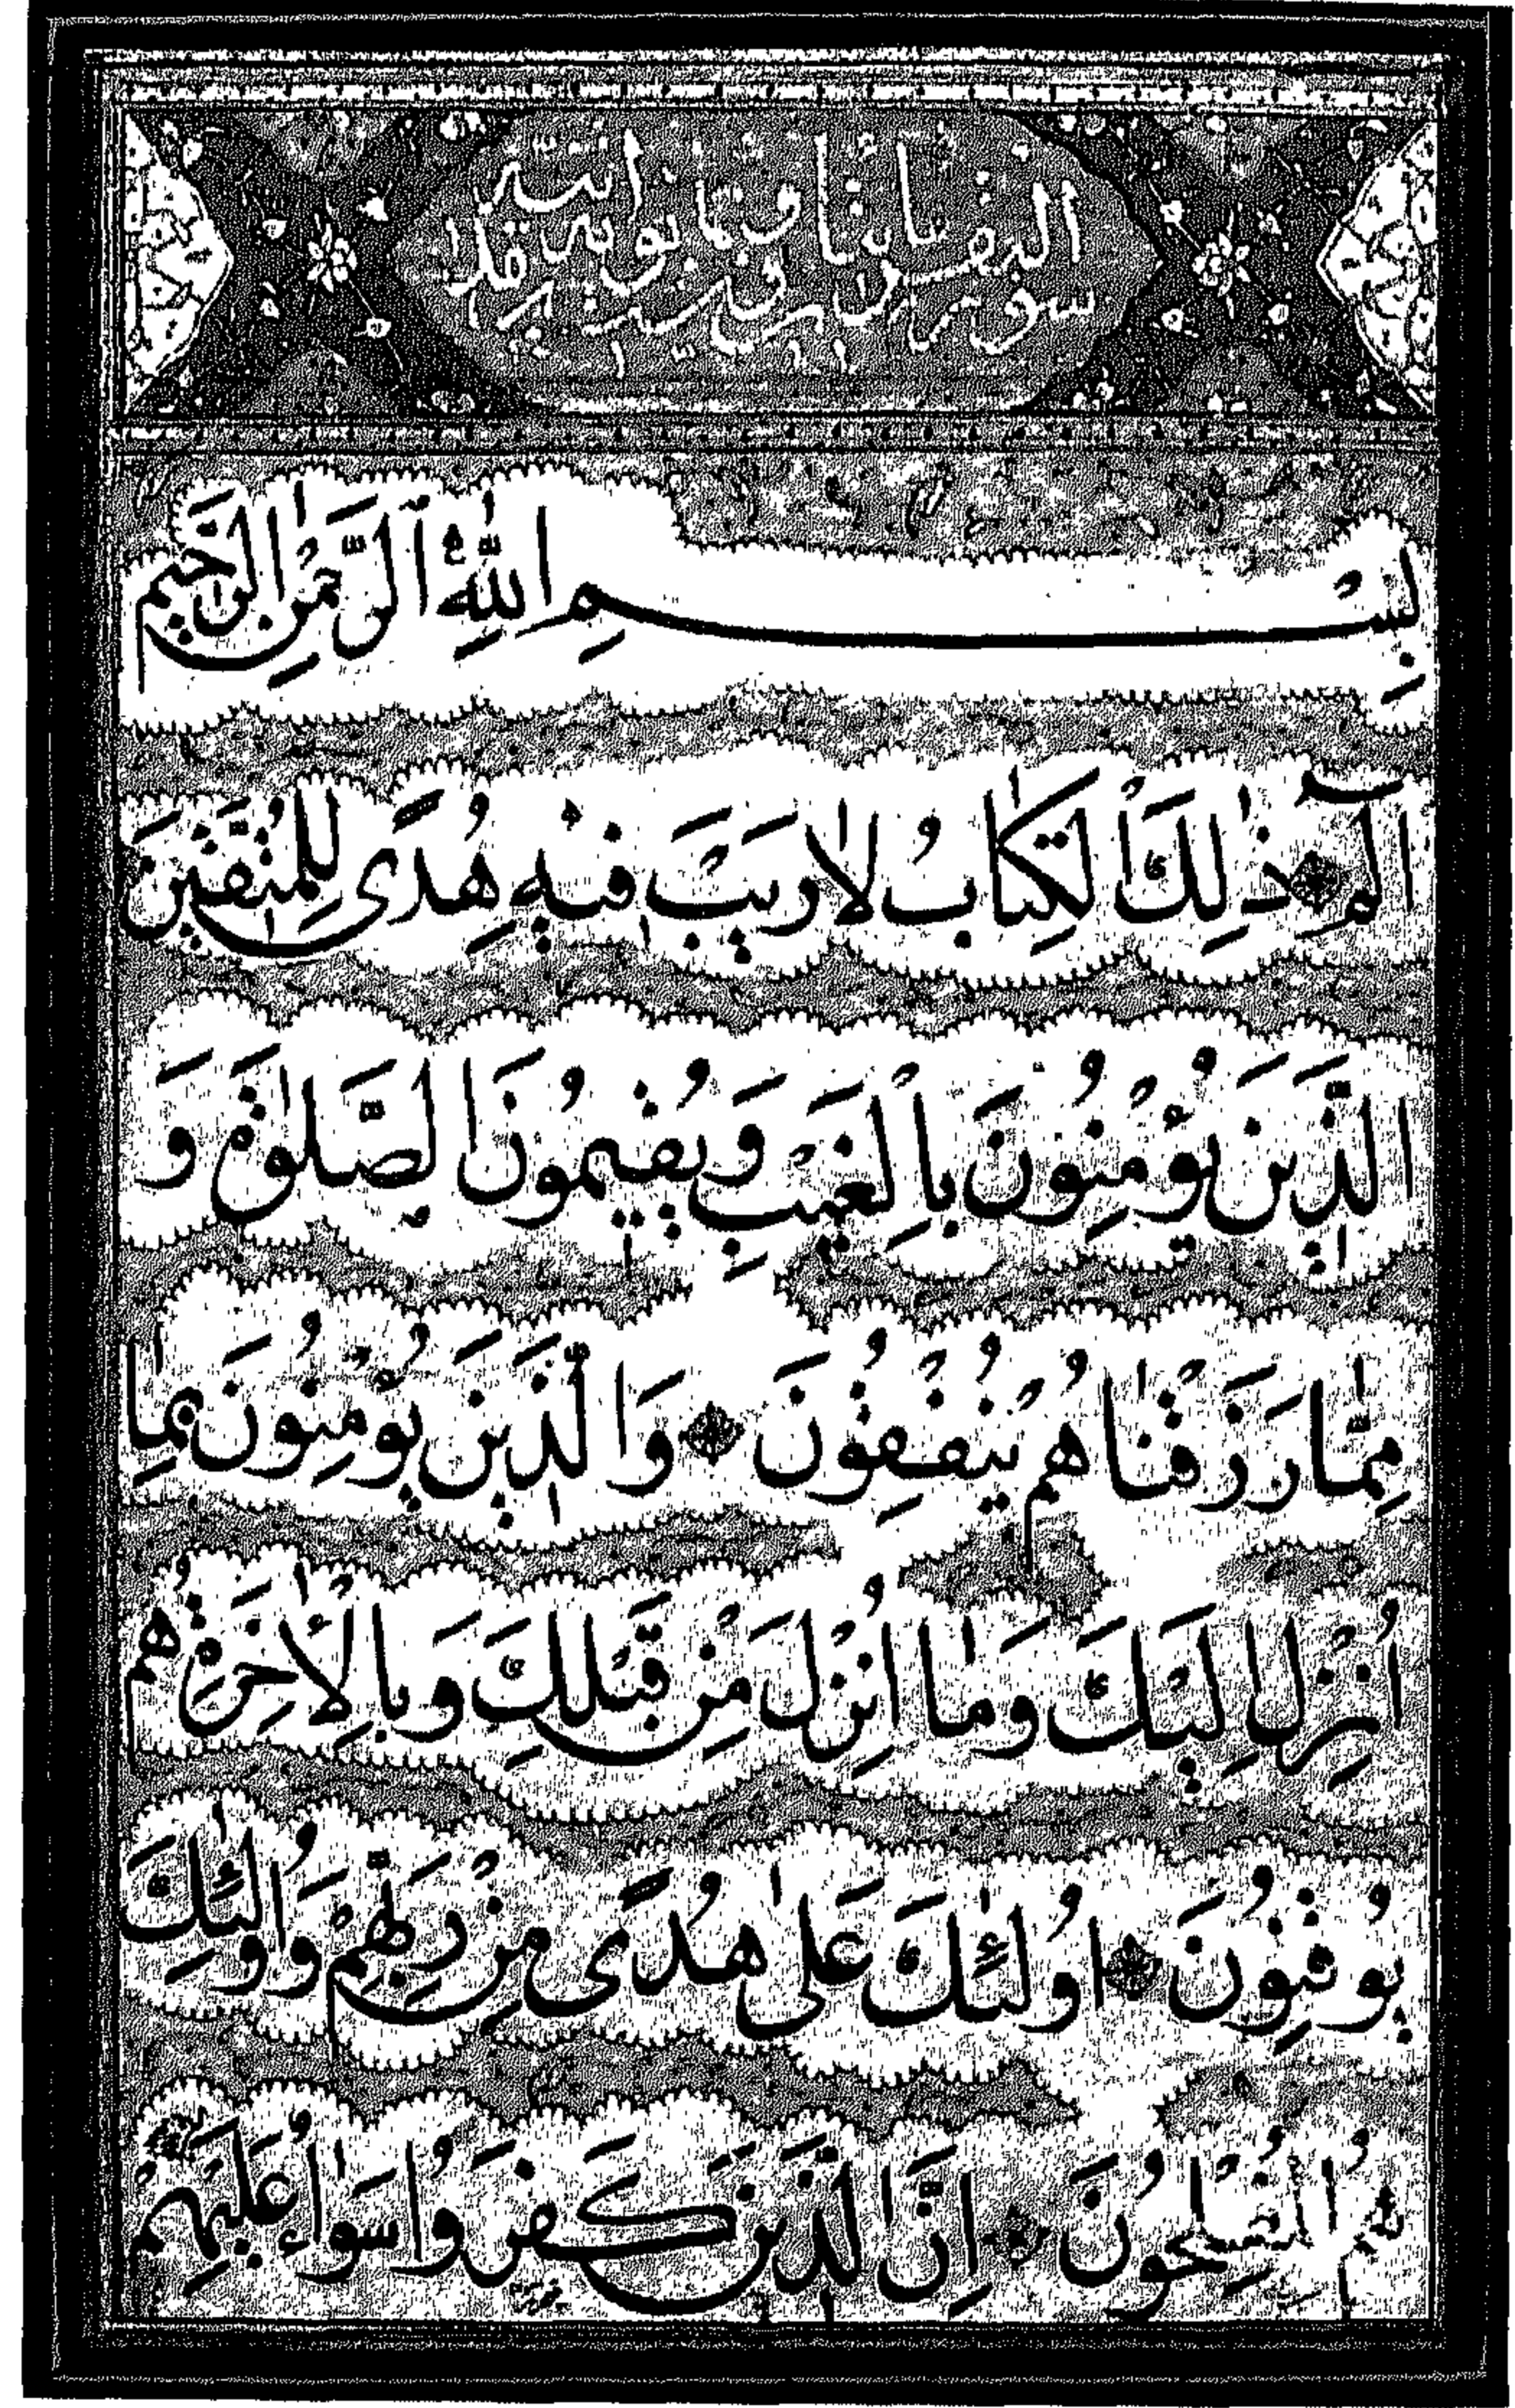 سورة البقرة
بِسْمِ اللّٰهِ الرَّحْمٰنِ الرَّحٖيمِ
الٓمٓ ذٰلِكَ الْكِتَابُ لَا رَيْبَ فٖيهِ هُدًى لِلْمُتَّقٖينَ
الَّذٖينَ يُؤْمِنُونَ بِالْغَيْبِ وَيُقٖيمُونَ الصَّلٰوةَ وَ
مِمَّا رَزَقْنَاهُمْ يُنْفِقُونَ وَالَّذٖينَ يُؤْمِنُونَ بِمَا
اُنْزِلَ اِلَيْكَ وَمَا اُنْزِلَ مِنْ قَبْلِكَ وَبِالْاٰخِرَةِ هُمْ
يُوقِنُونَ اُولٰئِكَ عَلٰى هُدًى مِنْ رَبِّهِمْ وَاُولٰئِكَ
هُمُ الْمُفْلِحُونَ اِنَّ الَّذٖينَ كَفَرُوا سَوَاءٌ عَلَيْهِمْ